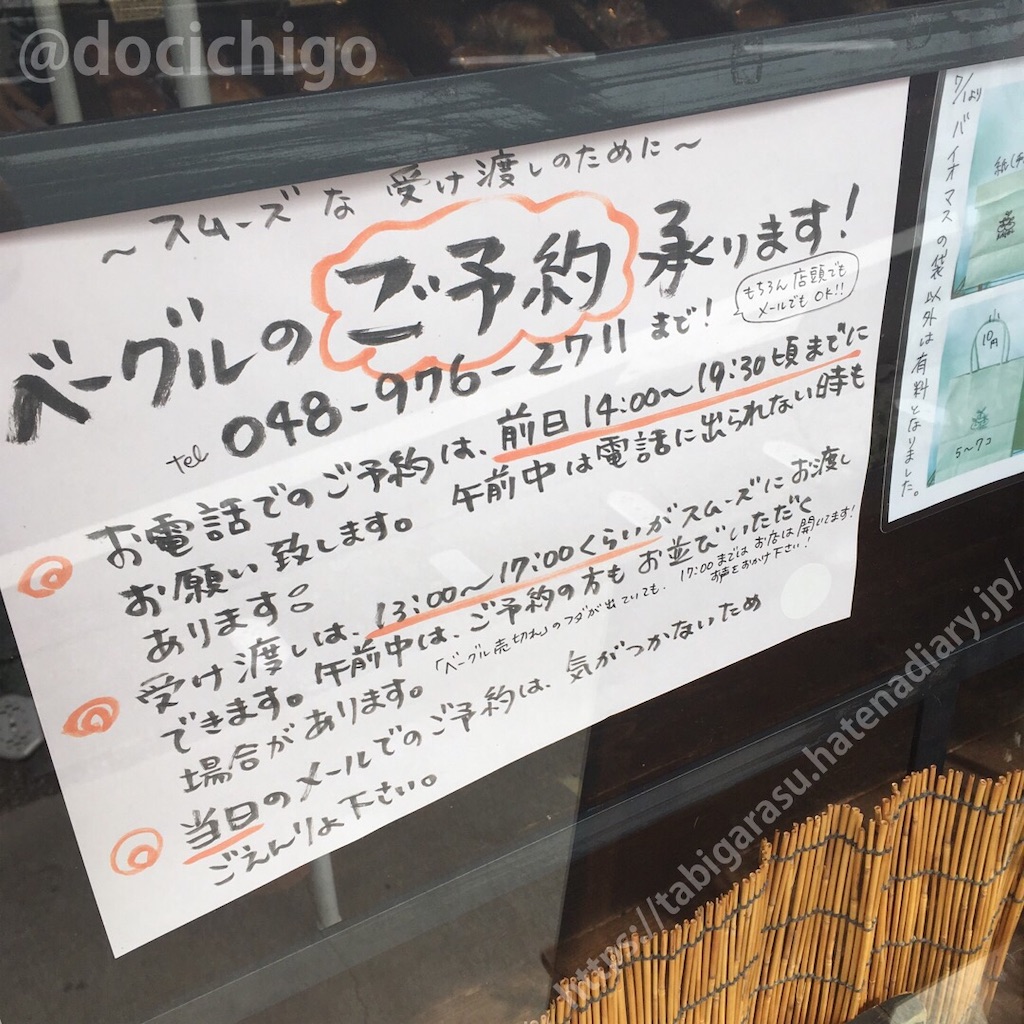 @docichigo
～スムーズな 受け渡しのために～
ベーグルの ご予約 承ります!
もちろん 店頭でも
メールでも OK!!
tel 048-976-2711 まで!
お電話でのご予約は、前日14:00～19:30頃までに
お願い致します。 午前中は電話に出られない時も
あります。
受け渡しは、13:00～17:00くらいがスムーズにお渡し
できます。午前中は、ご予約の方もお並びいただく
場合があります。
「ベーグル売切れ」のフダが出ていても、17:00まではお店は開いてます!
お声をおかけ下さい!
当日のメールでのご予約は、気がつかないため
ごえんりょ下さい。
7/1より
バイオマスの袋以外は有料となりました。
紙(チ
10円
5～7コ
https://tabigarasu.hatenadiary.jp/